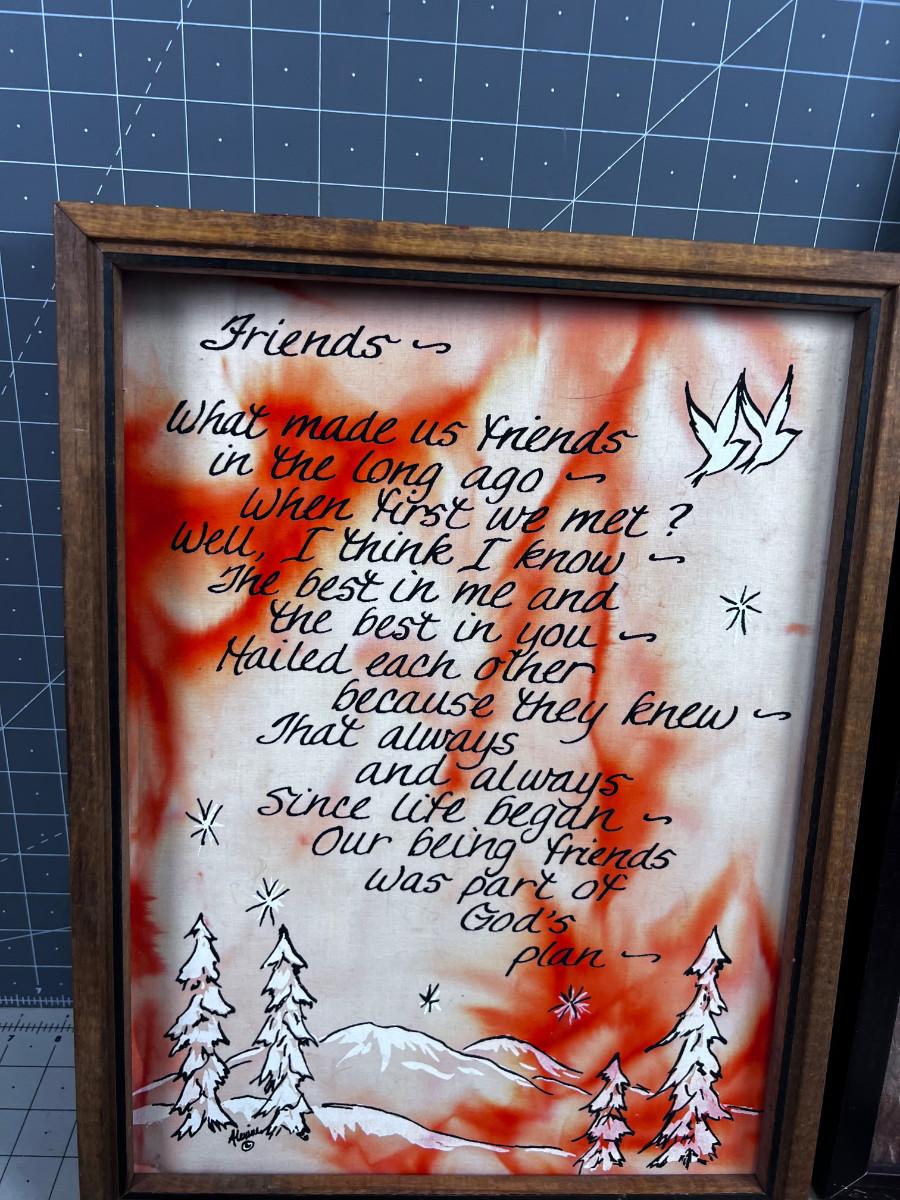 Friends ~
What made us friends
in the long ago ~
When first we met?
Well, I think I know ~
The best in me and
the best in you ~
Hailed each other
because they knew ~
That always
and always
Since life began ~
Our being friends
was part of
God's
plan ~
©
7
8
7